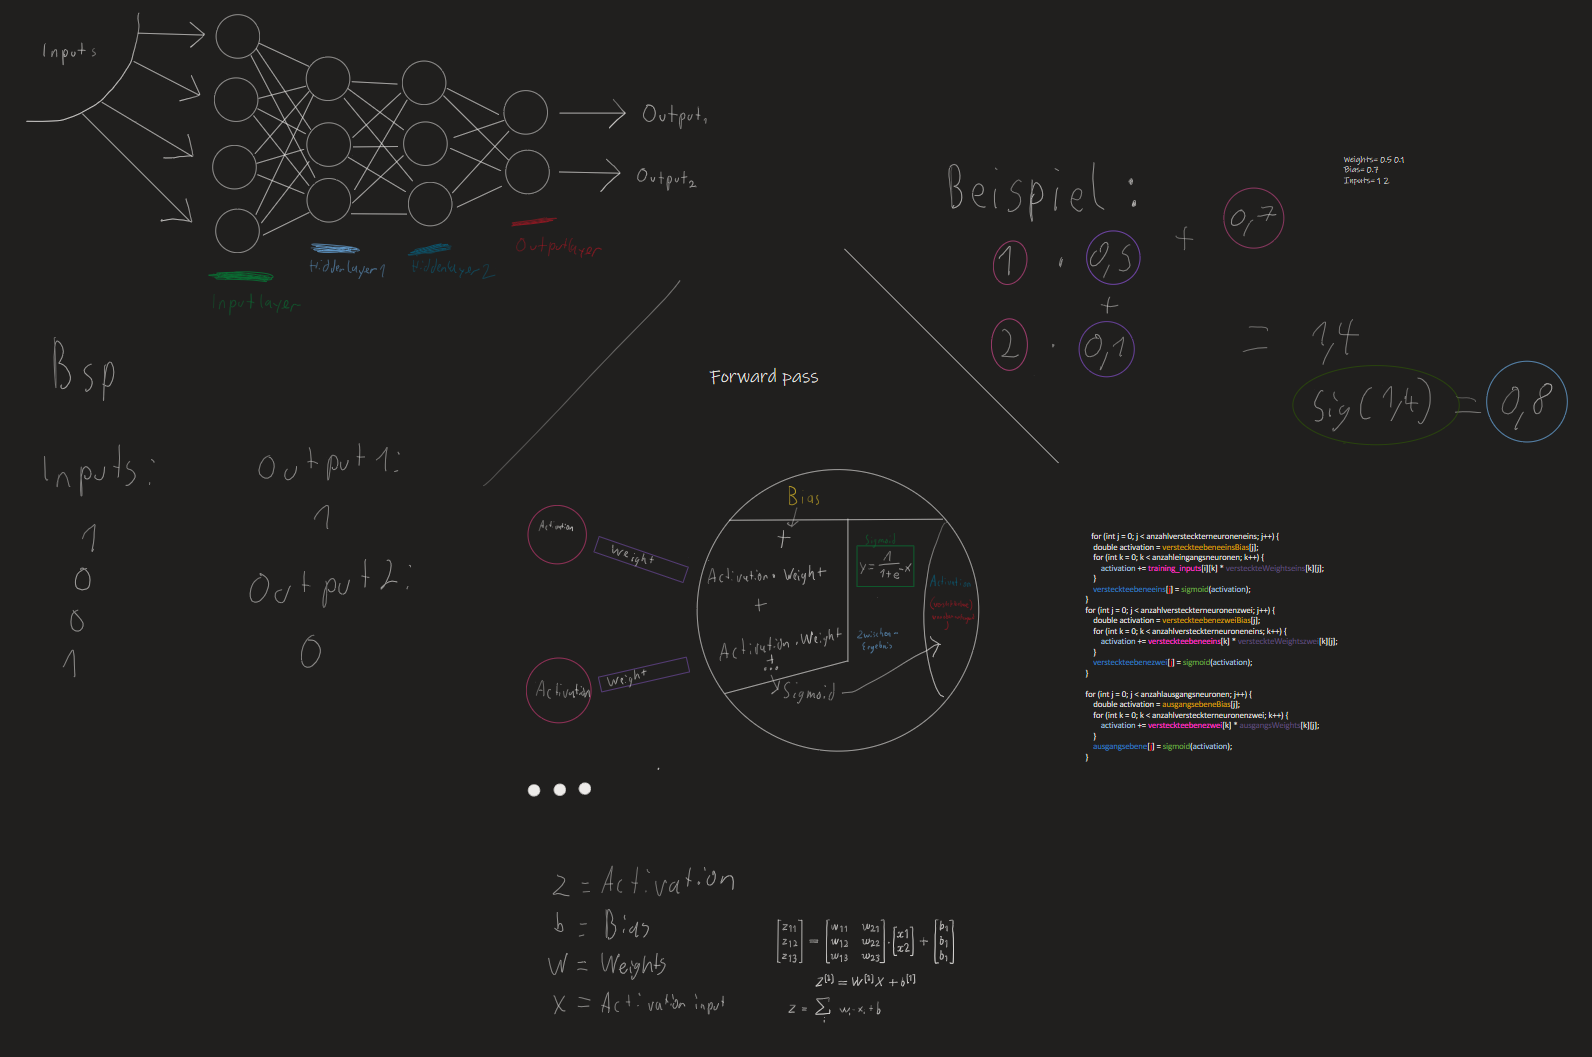 Inputs
Output1
Output2
Inputlayer
Hiddenlayer1
Hiddenlayer2
Outputlayer
Bsp
Inputs:
1
0
0
1
Output1:
1
Output2:
0
Forward pass
Beispiel:
1 · 0,5 + 0,7
+
2 · 0,1 = 1,4
Sig(1,4) = 0,8
Weights= 0.5 0.1
Bias= 0.7
Inputs= 1 2
Activation
Weight
Activation
Weight
Bias
+
Activation · Weight
+
Activation · Weight
+
...
Sigmoid
Sigmoid
y = 1/(1+e^-x)
Zwischen-
Ergebnis
Activation
for (int j = 0; j < anzahlversteckterneuroneneins; j++) {
double activation = versteckteebeneeinsBias[j];
for (int k = 0; k < anzahleingangsneuronen; k++) {
activation += training_inputs[i][k] * versteckteWeightseins[k][j];
}
versteckteebeneeins[j] = sigmoid(activation);
}
for (int j = 0; j < anzahlversteckterneuronenzwei; j++) {
double activation = versteckteebenezweiBias[j];
for (int k = 0; k < anzahlversteckterneuroneneins; k++) {
activation += versteckteebeneeins[k] * versteckteWeightszwei[k][j];
}
versteckteebenezwei[j] = sigmoid(activation);
}
for (int j = 0; j < anzahlausgangsneuronen; j++) {
double activation = ausgangsebeneBias[j];
for (int k = 0; k < anzahlversteckterneuronenzwei; k++) {
activation += versteckteebenezwei[k] * ausgangsWeights[k][j];
}
ausgangsebene[j] = sigmoid(activation);
}
z = Activation
b = Bias
W = Weights
X = Activation input
[z11 z12 z13] = [w11 w21 w12 w22 w13 w23] · [x1 x2] + [b1 b1 b1]
Z[1] = W[1]X + b[1]
z = ∑i wi · xi + b